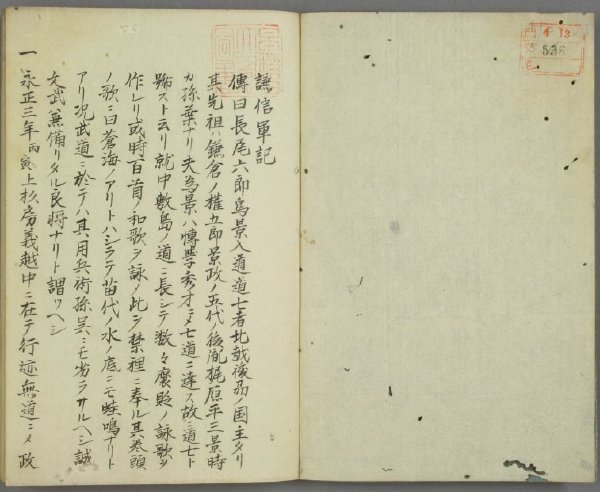 謙信軍記
傳曰長尾六郎為景入道道七者北越後刕ノ国主タリ
其先祖ハ鎌倉ノ権五郎景政ノ五代ノ後胤梶原平三景時
カ孫葉ナリ夫為景ハ博学秀才ニメ七道ニ達ス故ニ道七ト
號スト云リ就中敷島ノ道ニ長シテ数々褒貶ノ詠歌ヲ
作レリ或時百首ノ和歌ヲ詠メ此ヲ禁裡ニ奉ル其巻頭
ノ歌ニ曰蒼海ノアリトハシラテ苗代ノ水ノ底ニモ蛙鳴ナリト
アリ況武道ニ於テハ其用兵術孫呉ニモ劣ラサルヘシ誠
文武兼備リタル良将ナリト謂ツヘシ
一永正三年丙寅上杉房義越中ニ在テ行迹無道ニメ政
13
536